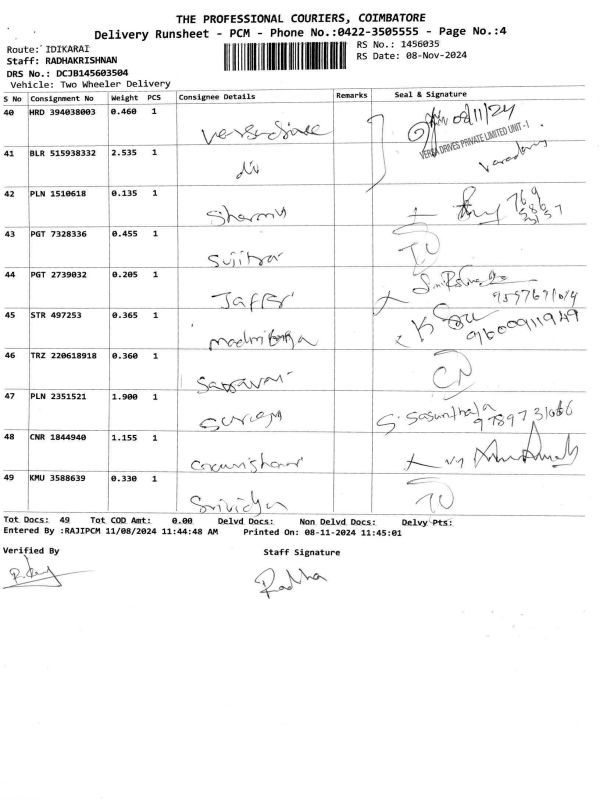 THE PROFESSIONAL COURIERS, COIMBATORE
Delivery Runsheet - PCM - Phone No.:0422-3505555 - Page No.:4
Route: IDIKARAI
RS No.: 1456035
Staff: RADHAKRISHNAN
RS Date: 08-Nov-2024
DRS No.: DCJB145603504
Vehicle: Two Wheeler Delivery
S No Consignment No Weight PCS Consignee Details Remarks Seal & Signature
40 HRD 394038003 0.460 1 08/11/24
VERSA DRIVES PRIVATE LIMITED UNIT - I
41 BLR 515938332 2.535 1 div
42 PLN 1510618 0.135 1
43 PGT 7328336 0.455 1 Sujitha
44 PGT 2739032 0.205 1 Jaffer
45 STR 497253 0.365 1 9600911949
46 TRZ 220618918 0.360 1 CN
47 PLN 2351521 1.900 1 S. Sasunthala
48 CNR 1844940 1.155 1
49 KMU 3588639 0.330 1 Srividya
Tot Docs: 49 Tot COD Amt: 0.00 Delvd Docs: Non Delvd Docs: Delvy Pts:
Entered By :RAJIPCM 11/08/2024 11:44:48 AM Printed On: 08-11-2024 11:45:01
Verified By Staff Signature
Radha